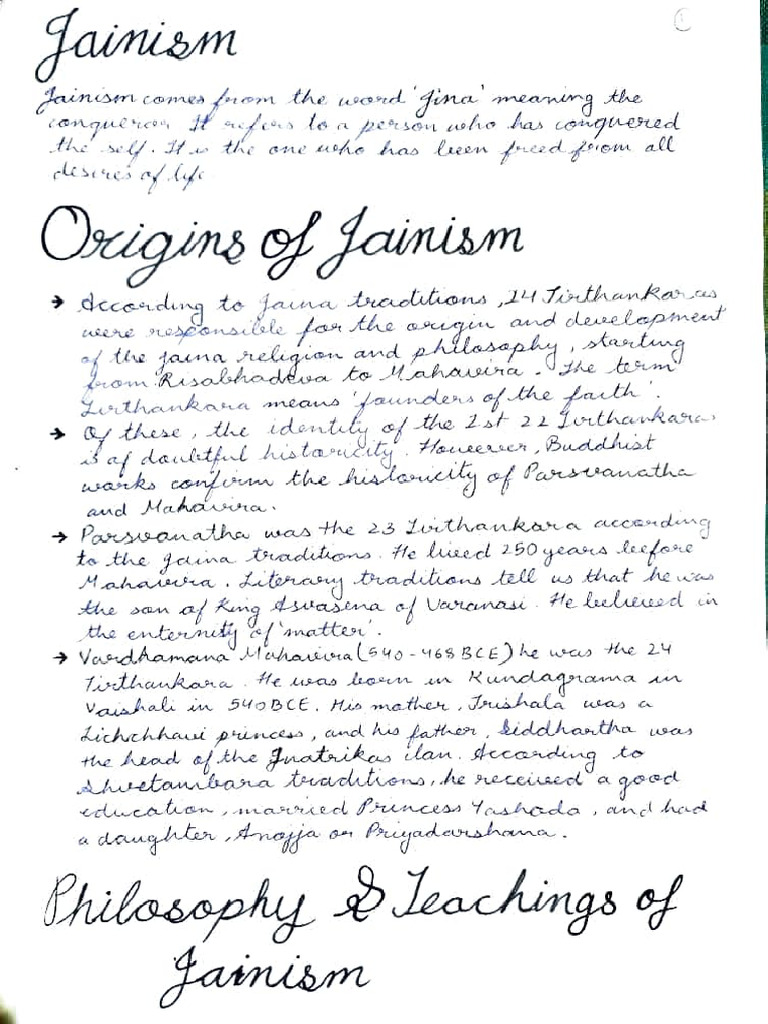 Jainism
Jainism comes from the word 'Jina' meaning the
conqueror. It refers to a person who has conquered
the self. It is the one who has been freed from all
desires of life
Origins of Jainism
→ According to Jaina traditions, 24 Tirthankaras
were responsible for the origin and development
of the Jaina religion and philosophy, starting
from Risabhadeva to Mahavira. The term
Tirthankara means 'founders of the faith'.
→ Of these, the identity of the 1st 22 Tirthankaras
is of doubtful historicity. However, Buddhist
works confirm the historicity of Parsvanatha
and Mahavira.
→ Parsvanatha was the 23 Tirthankara according
to the Jaina traditions. He lived 250 years before
Mahavira. Literary traditions tell us that he was
the son of King Asvasena of Varanasi. He believed in
the enternity of 'matter'.
→ Vardhamana Mahavira (540-468 BCE) he was the 24
Tirthankara. He was born in Kundagrama in
Vaishali in 540 BCE. His mother, Trishala was a
Lichchhavi princess, and his father, Siddhartha was
the head of the Jnatrikas clan. According to
Shvetambara traditions, he received a good
education, married Princess Yashoda, and had
a daughter, Anojja or Priyadarshana.
Philosophy & Teachings of
Jainism